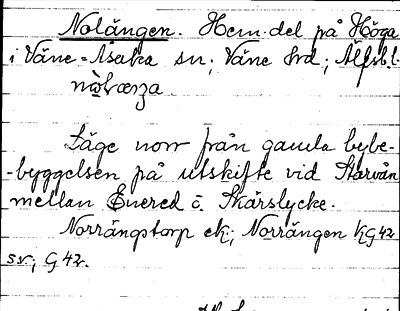 Nolängen. Hem. del på Höga
i Väne-Åsaka sn; Väne hd; Älfsb.l.
Läge norr från gamla bybe-
-byggelsen på utskifte vid Storvån
mellan Enered o. Skärslycke.
Norrängstorp ek; Norrängen kG42
sv; G 42.